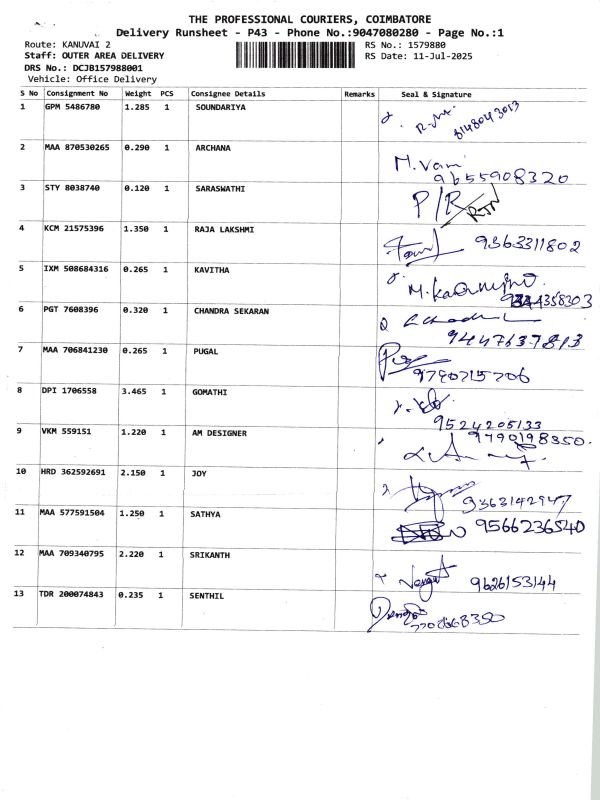 THE PROFESSIONAL COURIERS, COIMBATORE
Delivery Runsheet - P43 - Phone No.:9047080280 - Page No.:1
Route: KANUVAI 2 RS No.: 1579880
Staff: OUTER AREA DELIVERY RS Date: 11-Jul-2025
DRS No.: DCJB157988001
Vehicle: Office Delivery
S No Consignment No Weight PCS Consignee Details Remarks Seal & Signature
1 GPM 5486780 1.285 1 SOUNDARIYA 8148043013
2 MAA 870530265 0.290 1 ARCHANA M.Vani
9655908320
3 STY 8038740 0.120 1 SARASWATHI P/R RTN
4 KCM 21575396 1.350 1 RAJA LAKSHMI 9363311802
5 IXM 508684316 0.265 1 KAVITHA
6 PGT 7608396 0.320 1 CHANDRA SEKARAN
9447637813
7 MAA 706841230 0.265 1 PUGAL
9790715706
8 DPI 1706558 3.465 1 GOMATHI
9524205133
9 VKM 559151 1.220 1 AM DESIGNER 9790198350.
10 HRD 362592691 2.150 1 JOY 9363142947
11 MAA 577591504 1.250 1 SATHYA 9566236540
12 MAA 709340795 2.220 1 SRIKANTH 9626153144
13 TDR 200074843 0.235 1 SENTHIL